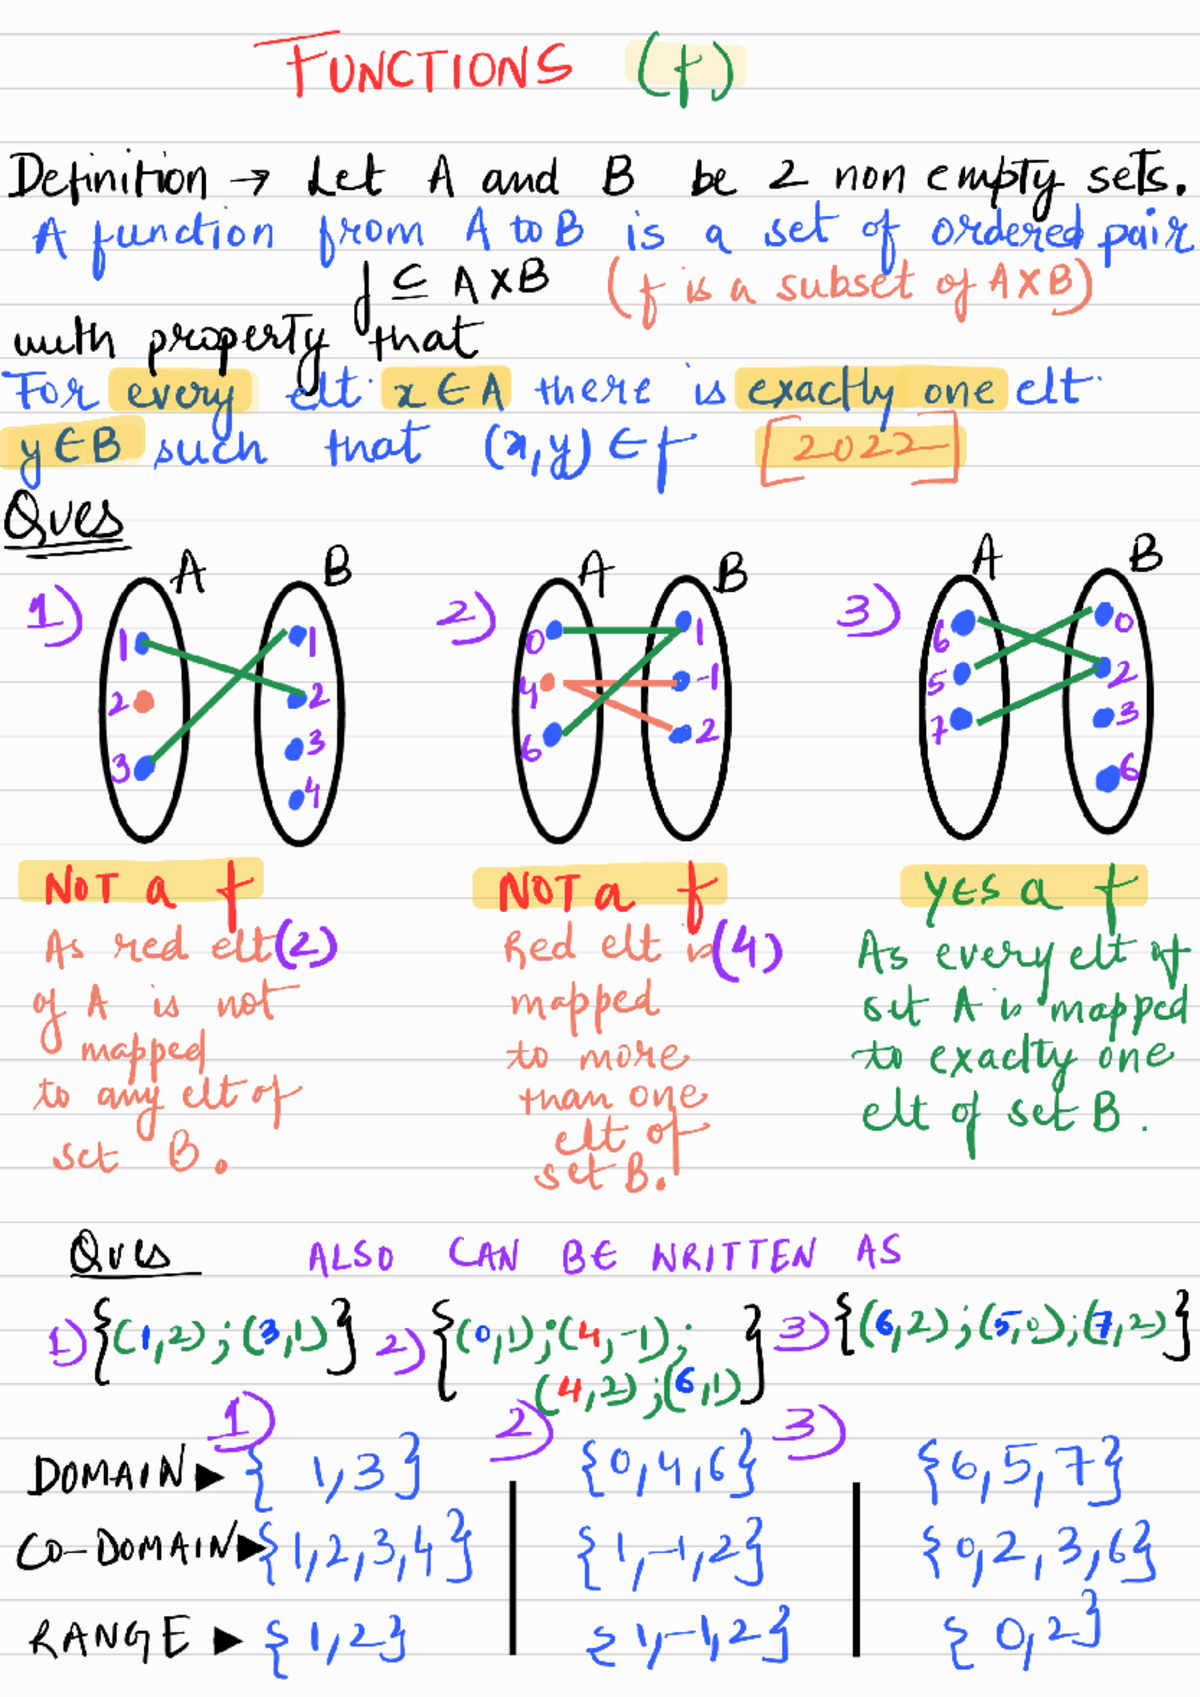 FUNCTIONS (f)
Definition → Let A and B be 2 non empty sets.
A function from A to B is a set of ordered pair
f ⊆ A×B (f is a subset of A×B)
with property that
For every elt. x∈A there is exactly one elt.
y∈B such that (x,y) ∈ f [2022]
Ques
1) A B 2) A B 3) A B
1 1
2 2
3 3
4
0 1
4 -1
6 2
6 0
5 2
7 3
6
NOT a f
As red elt (2)
of A is not
mapped
to any elt of
set B.
NOT a f
Red elt is (4)
mapped
to more
than one
elt of
set B.
YES a f
As every elt of
set A is mapped
to exactly one
elt of set B.
Ques ALSO CAN BE WRITTEN AS
1) {(1,2);(3,1)} 2) {(0,1);(4,-1);
(4,2);(6,1)} 3) {(6,2);(5,0);(7,2)}
1) 2) 3)
DOMAIN ► { 1,3} {0,4,6} {6,5,7}
CO-DOMAIN ► {1,2,3,4} {1,-1,2} {0,2,3,6}
RANGE ► {1,2} {1,-1,2} {0,2}